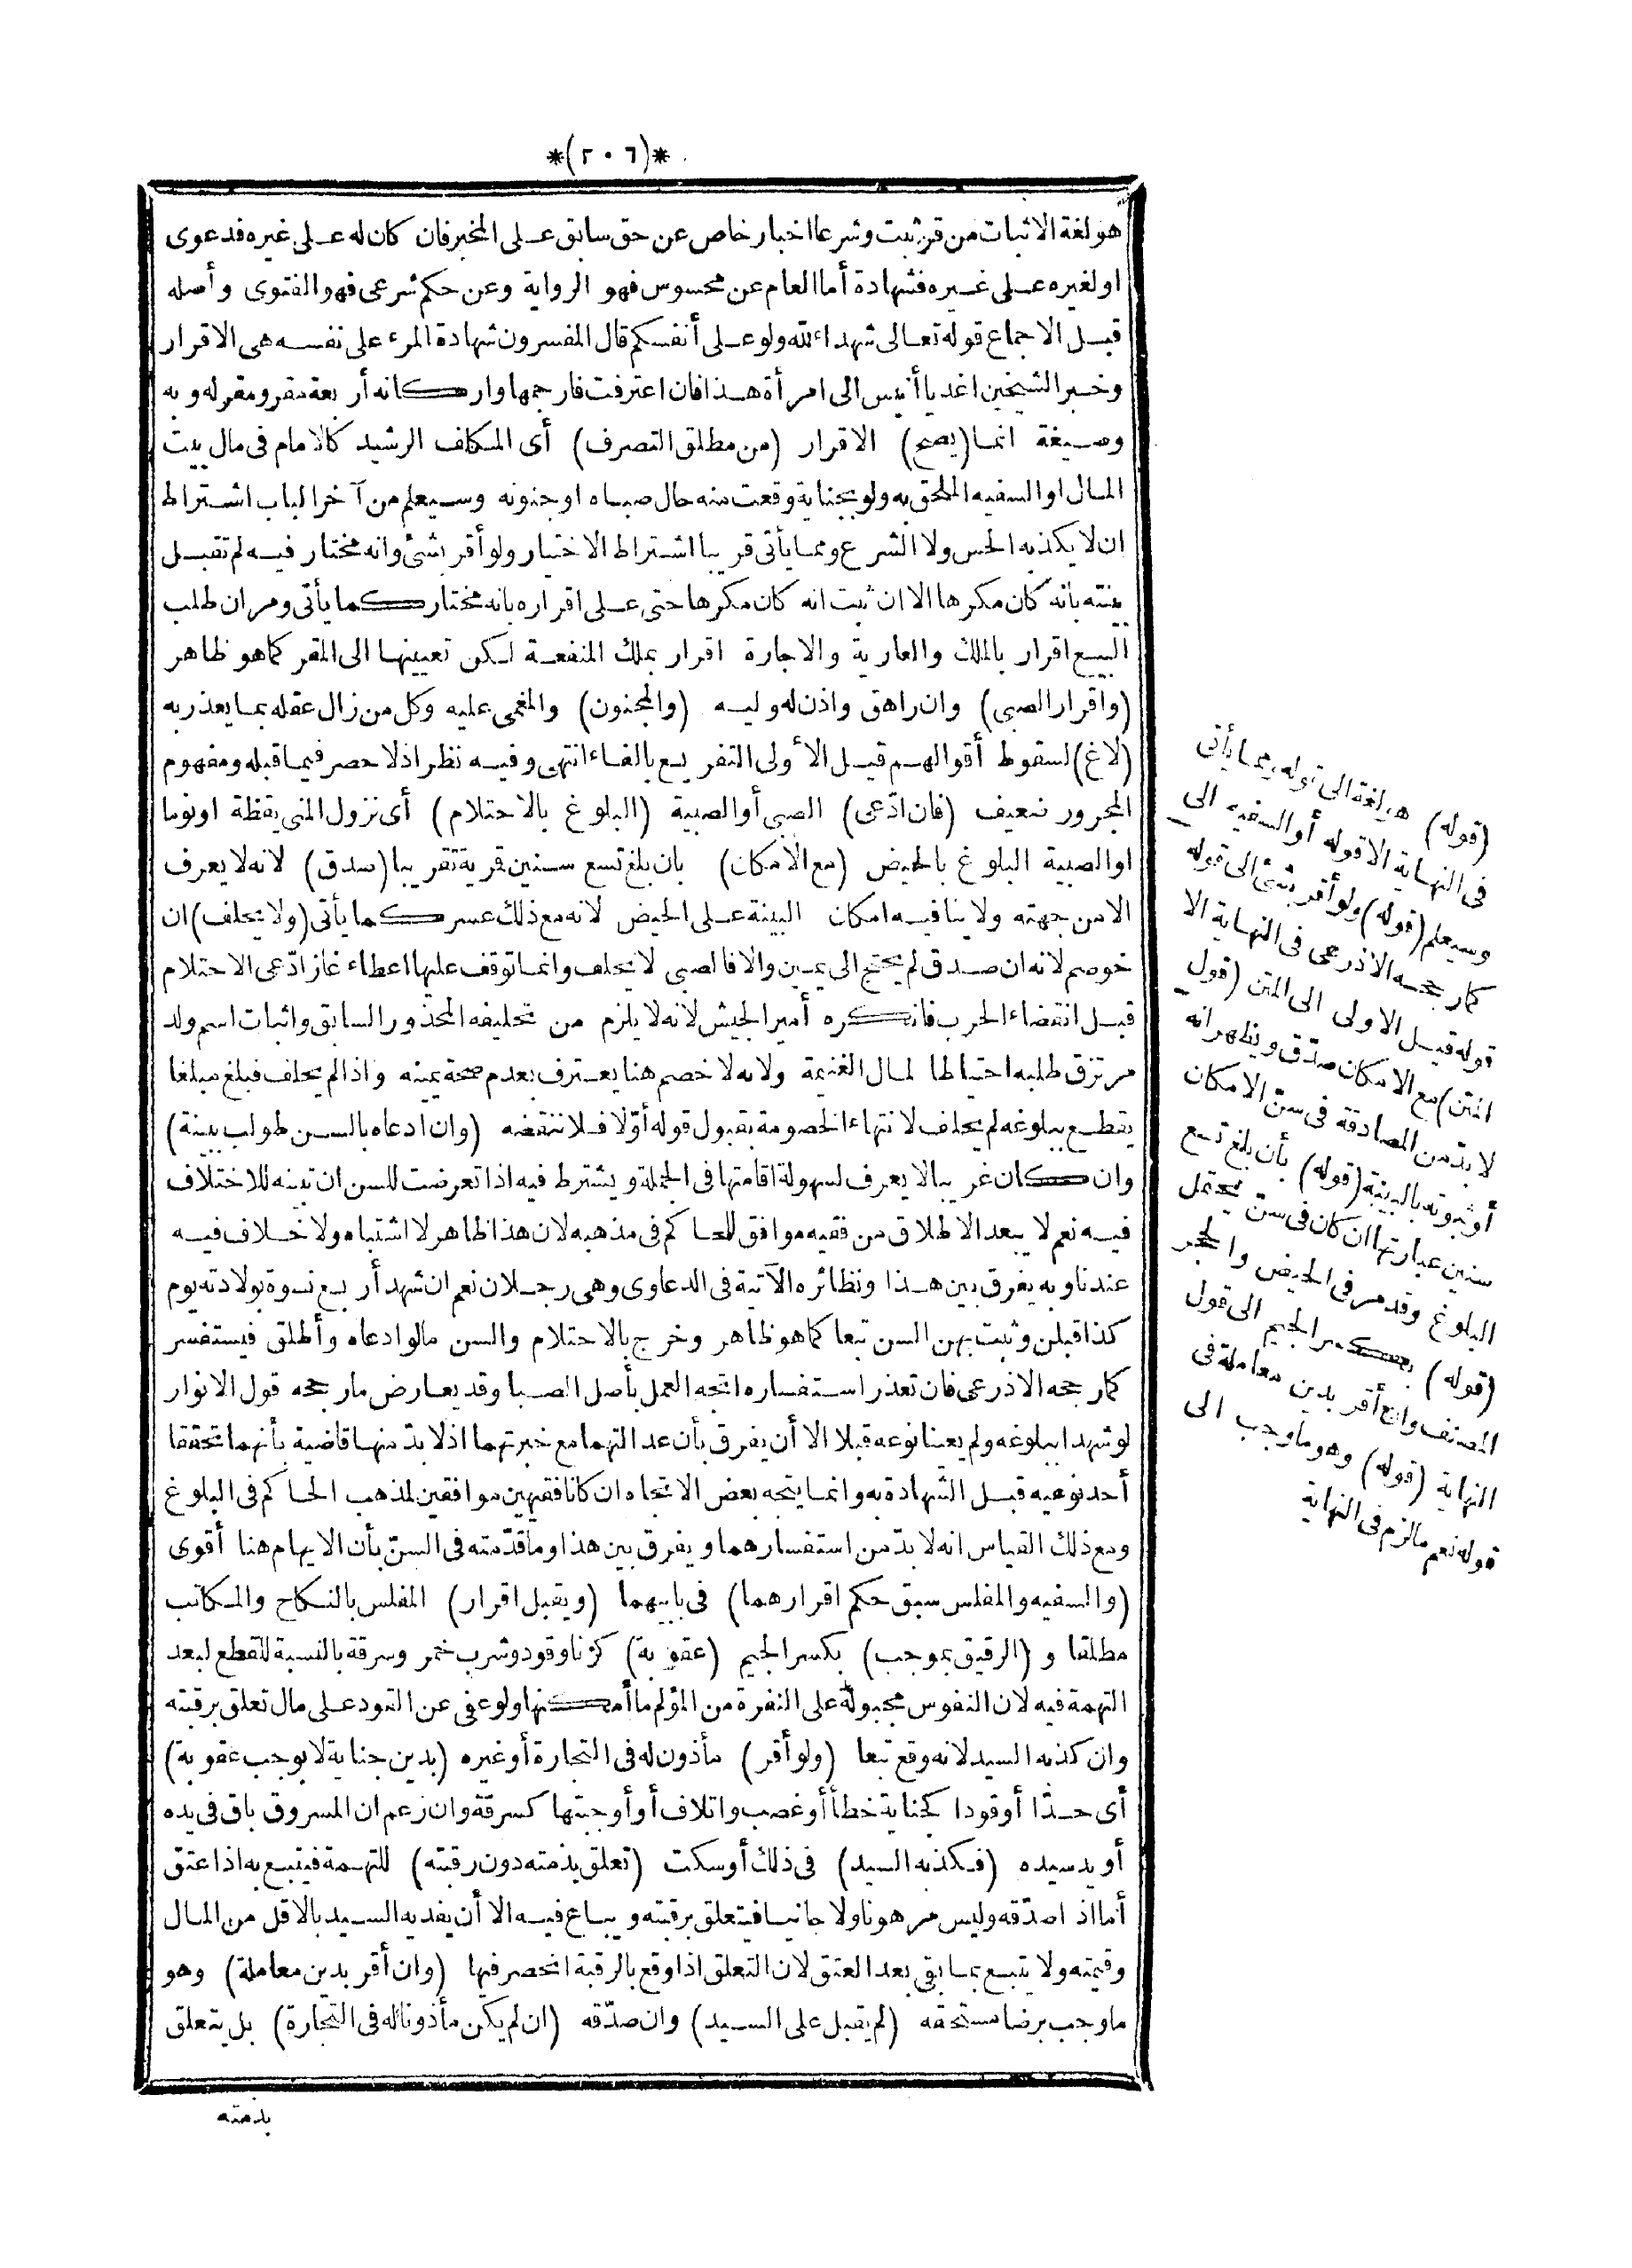 *(٢٠٦)*
هو لغة الاثبات من قرّ ثبت وشرعا اخبار خاص عن حق سابق على المخبر فان كان له على غيره فدعوى
او لغيره على غيره فشهادة أما العام عن محسوس فهو الرواية وعن حكم شرعى فهو الفتوى وأصله
قبل الاجماع قوله تعالى شهداء لله ولو على أنفسكم قال المفسرون شهادة المرء على نفسه هى الاقرار
وخبر الشيخين اغد يا أنيس الى امرأة هذا فان اعترفت فارجمها واركانه أربعة مقر ومقر له وبه
وصيغة انما (يصح) الاقرار (من مطلق التصرف) أى المكلف الرشيد كالامام فى مال بيت
المال او السفيه الملحق به ولو بجناية وقعت منه حال صباه او جنونه وسيعلم من آخر الباب اشتراط
ان لا يكذبه الحس ولا الشرع ومما يأتى قريبا اشتراط الاختيار ولو أقر بشئ وانه مختار فيه لم تقبل
بينته بأنه كان مكرها الا ان ثبت انه كان مكرها حتى على اقراره بانه مختار كما يأتى ومر ان طلب
البيع اقرار بالملك والعارية والاجارة اقرار بملك المنفعة لكن تعيينها الى المقر كما هو ظاهر
(واقرار الصبى) وان راهق واذن له وليه (والمجنون) والمغمى عليه وكل من زال عقله بما يعذر به
(لاغ) لسقوط أقوالهم قيل الأولى التفريع بالفاء انتهى وفيه نظر اذ لا حصر فيما قبله ومفهوم
المجرور ضعيف (فان ادّعى) الصبى أو الصبية (البلوغ بالاحتلام) أى نزول المنى يقظة او نوما
او الصبية البلوغ بالحيض (مع الامكان) بان بلغ تسع سنين قمرية تقريبا (صدق) لانه لا يعرف
الا من جهته ولا ينافيه امكان البينة على الحيض لانه مع ذلك عسر كما يأتى (ولا يحلف) ان
خوصم لانه ان صدق لم يحتج الى يمين والا فالصبى لا يحلف وانما توقف عليها اعطاء غاز ادّعى الاحتلام
قبل انقضاء الحرب فانكره أمير الجيش لانه لا يلزم من تحليفه المحذور السابق واثبات اسم ولد
مرتزق طلبه احتياطا لمال الغنيمة ولانه لا خصم هنا يعترف بعدم صحة يمينه واذا لم يحلف فبلغ مبلغا
يقطع ببلوغه لم يحلف لانتهاء الخصومة بقبول قوله أوّلا فلا ننقضه (وان ادعاه بالسن طولب ببينة)
وان كان غريبا لا يعرف لسهولة اقامتها فى الجملة ويشترط فيه اذا تعرضت للسن ان تبينه للاختلاف
فيه نعم لا يبعد الاطلاق من فقيه موافق للحاكم فى مذهبه لان هذا ظاهر لا اشتباه ولا خلاف فيه
عندنا وبه يفرق بين هذا ونظائره الآتية فى الدعاوى وهى رجلان نعم ان شهد أربع نسوة بولادته يوم
كذا قبلن وثبت بهن السن تبعا كما هو ظاهر وخرج بالاحتلام والسن ما لو ادعاه وأطلق فيستفسر
كما رجحه الاذرعى فان تعذر استفساره اتجه العمل بأصل الصبا وقد يعارض ما رجحه قول الانوار
لو شهدا ببلوغه ولم يعينا نوعه قبلا الا أن يفرق بأن عدالتهما مع خبرتهما اذ لا بدّ منها قاضية بأنهما تحققا
أحد نوعيه قبل الشهادة به وانما يتجه بعض الاتجاه ان كانا فقيهين موافقين لمذهب الحاكم فى البلوغ
ومع ذلك القياس انه لا بدّ من استفسارهما ويفرق بين هذا وما قدّمته فى السنّ بأن الايهام هنا أقوى
(والسفيه والمفلس سبق حكم اقرارهما) فى بابيهما (ويقبل اقرار) المفلس بالنكاح والمكاتب
مطلقا و (الرقيق بموجب) بكسر الجيم (عقوبة) كزنا وقود وشرب خمر وسرقة بالنسبة للقطع لبعد
التهمة فيه لان النفوس مجبولة على النفرة من المؤلم ما أمكنها ولو عفى عن القود على مال تعلق برقبته
وان كذبه السيد لانه وقع تبعا (ولو أقر) مأذون له فى التجارة أو غيره (بدين جناية لا يوجب عقوبة)
أى حدّا أو قودا كجناية خطأ أو غصب واتلاف أو أوجبتها كسرقة وان زعم ان المسروق باق فى يده
أو يد سيده (فكذبه السيد) فى ذلك أو سكت (تعلق بذمته دون رقبته) للتهمة فيتبع به اذا عتق
أما اذا صدّقه وليس مرهونا ولا جانيا فيتعلق برقبته ويباع فيه الا أن يفديه السيد بالاقل من المال
وقيمته ولا يتبع بما بقى بعد العتق لان التعلق اذا وقع بالرقبة انحصر فيها (وان أقر بدين معاملة) وهو
ما وجب برضا مستحقه (لم يقبل على السيد) وان صدّقه (ان لم يكن مأذونا له فى التجارة) بل يتعلق
بذمته
(قوله) هو لغة الى قوله ومما يأتى
فى النهاية الا قوله أو السفيه الى
وسيعلم (قوله) ولو أقر بشئ الى قوله
كما رجحه الاذرعى فى النهاية الا
قوله قيل الاولى الى المتن (قول
المتن) مع الامكان صدّق ويظهر انه
لا بدّ من المصادقة فى سنّ الامكان
أو ثبوته بالبينة (قوله) بأن بلغ تسع
سنين عبارتها ان كان فى سنّ يحتمل
البلوغ وقد مر فى الحيض والحجر
(قوله) بكسر الجيم الى قول
المصنف وان أقر بدين معاملة فى
النهاية (قوله) وهو ما وجب الى
قوله نعم ما لزم فى النهاية